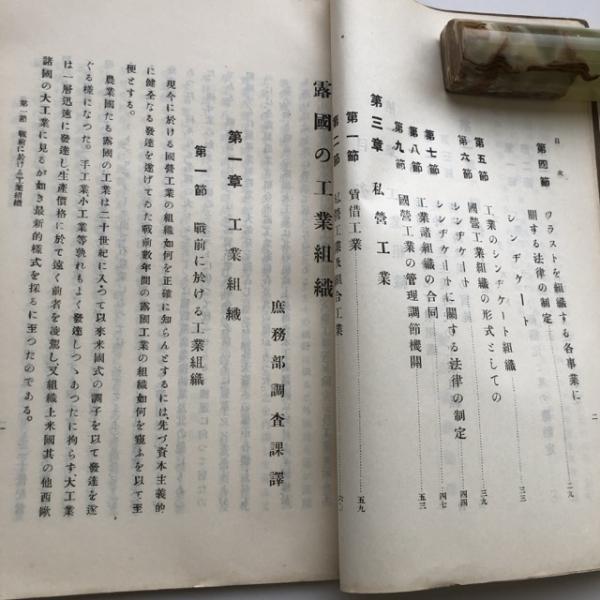 目次
二
第四節　ツラストを組織する各事業に
關する法律の制定………二九
シンヂケート………三三
第五節　工業のシンヂケート組織………三九
第六節　國營工業組織の形式としての
シンヂケート………四四
第七節　シンヂケートに關する法律の制定………四七
第八節　工業諸組織の合同
第九節　國營工業の管理調節機關………五三
第三章　私營工業
第一節　賃借工業………五九
第二節　私營工業及組合工業………六〇
露國の工業組織
庶務部調査課譯
第一章　工業組織
第一節　戰前に於ける工業組織
現今に於ける國營工業の組織如何を正確に知らんとするには、先づ資本主義的
に健全なる發達を遂げてゐた戰前數年間の露國工業の組織如何を窺ふを以て至
便とする。
農業國たる露國の工業は二十世紀に入つて以來米國式の調子を以て發達を遂
ぐる樣になつた。手工業、小工業等孰れもよく發達しつゝあつたに拘らず、大工業
は一層迅速に發達し生產價格に於て遠く前者を凌駕し又組織上米國其の他西歐
諸國の大工業に見るが如き最新的樣式を採るに至つたのである。
第一節　戰前に於ける工業組織
一